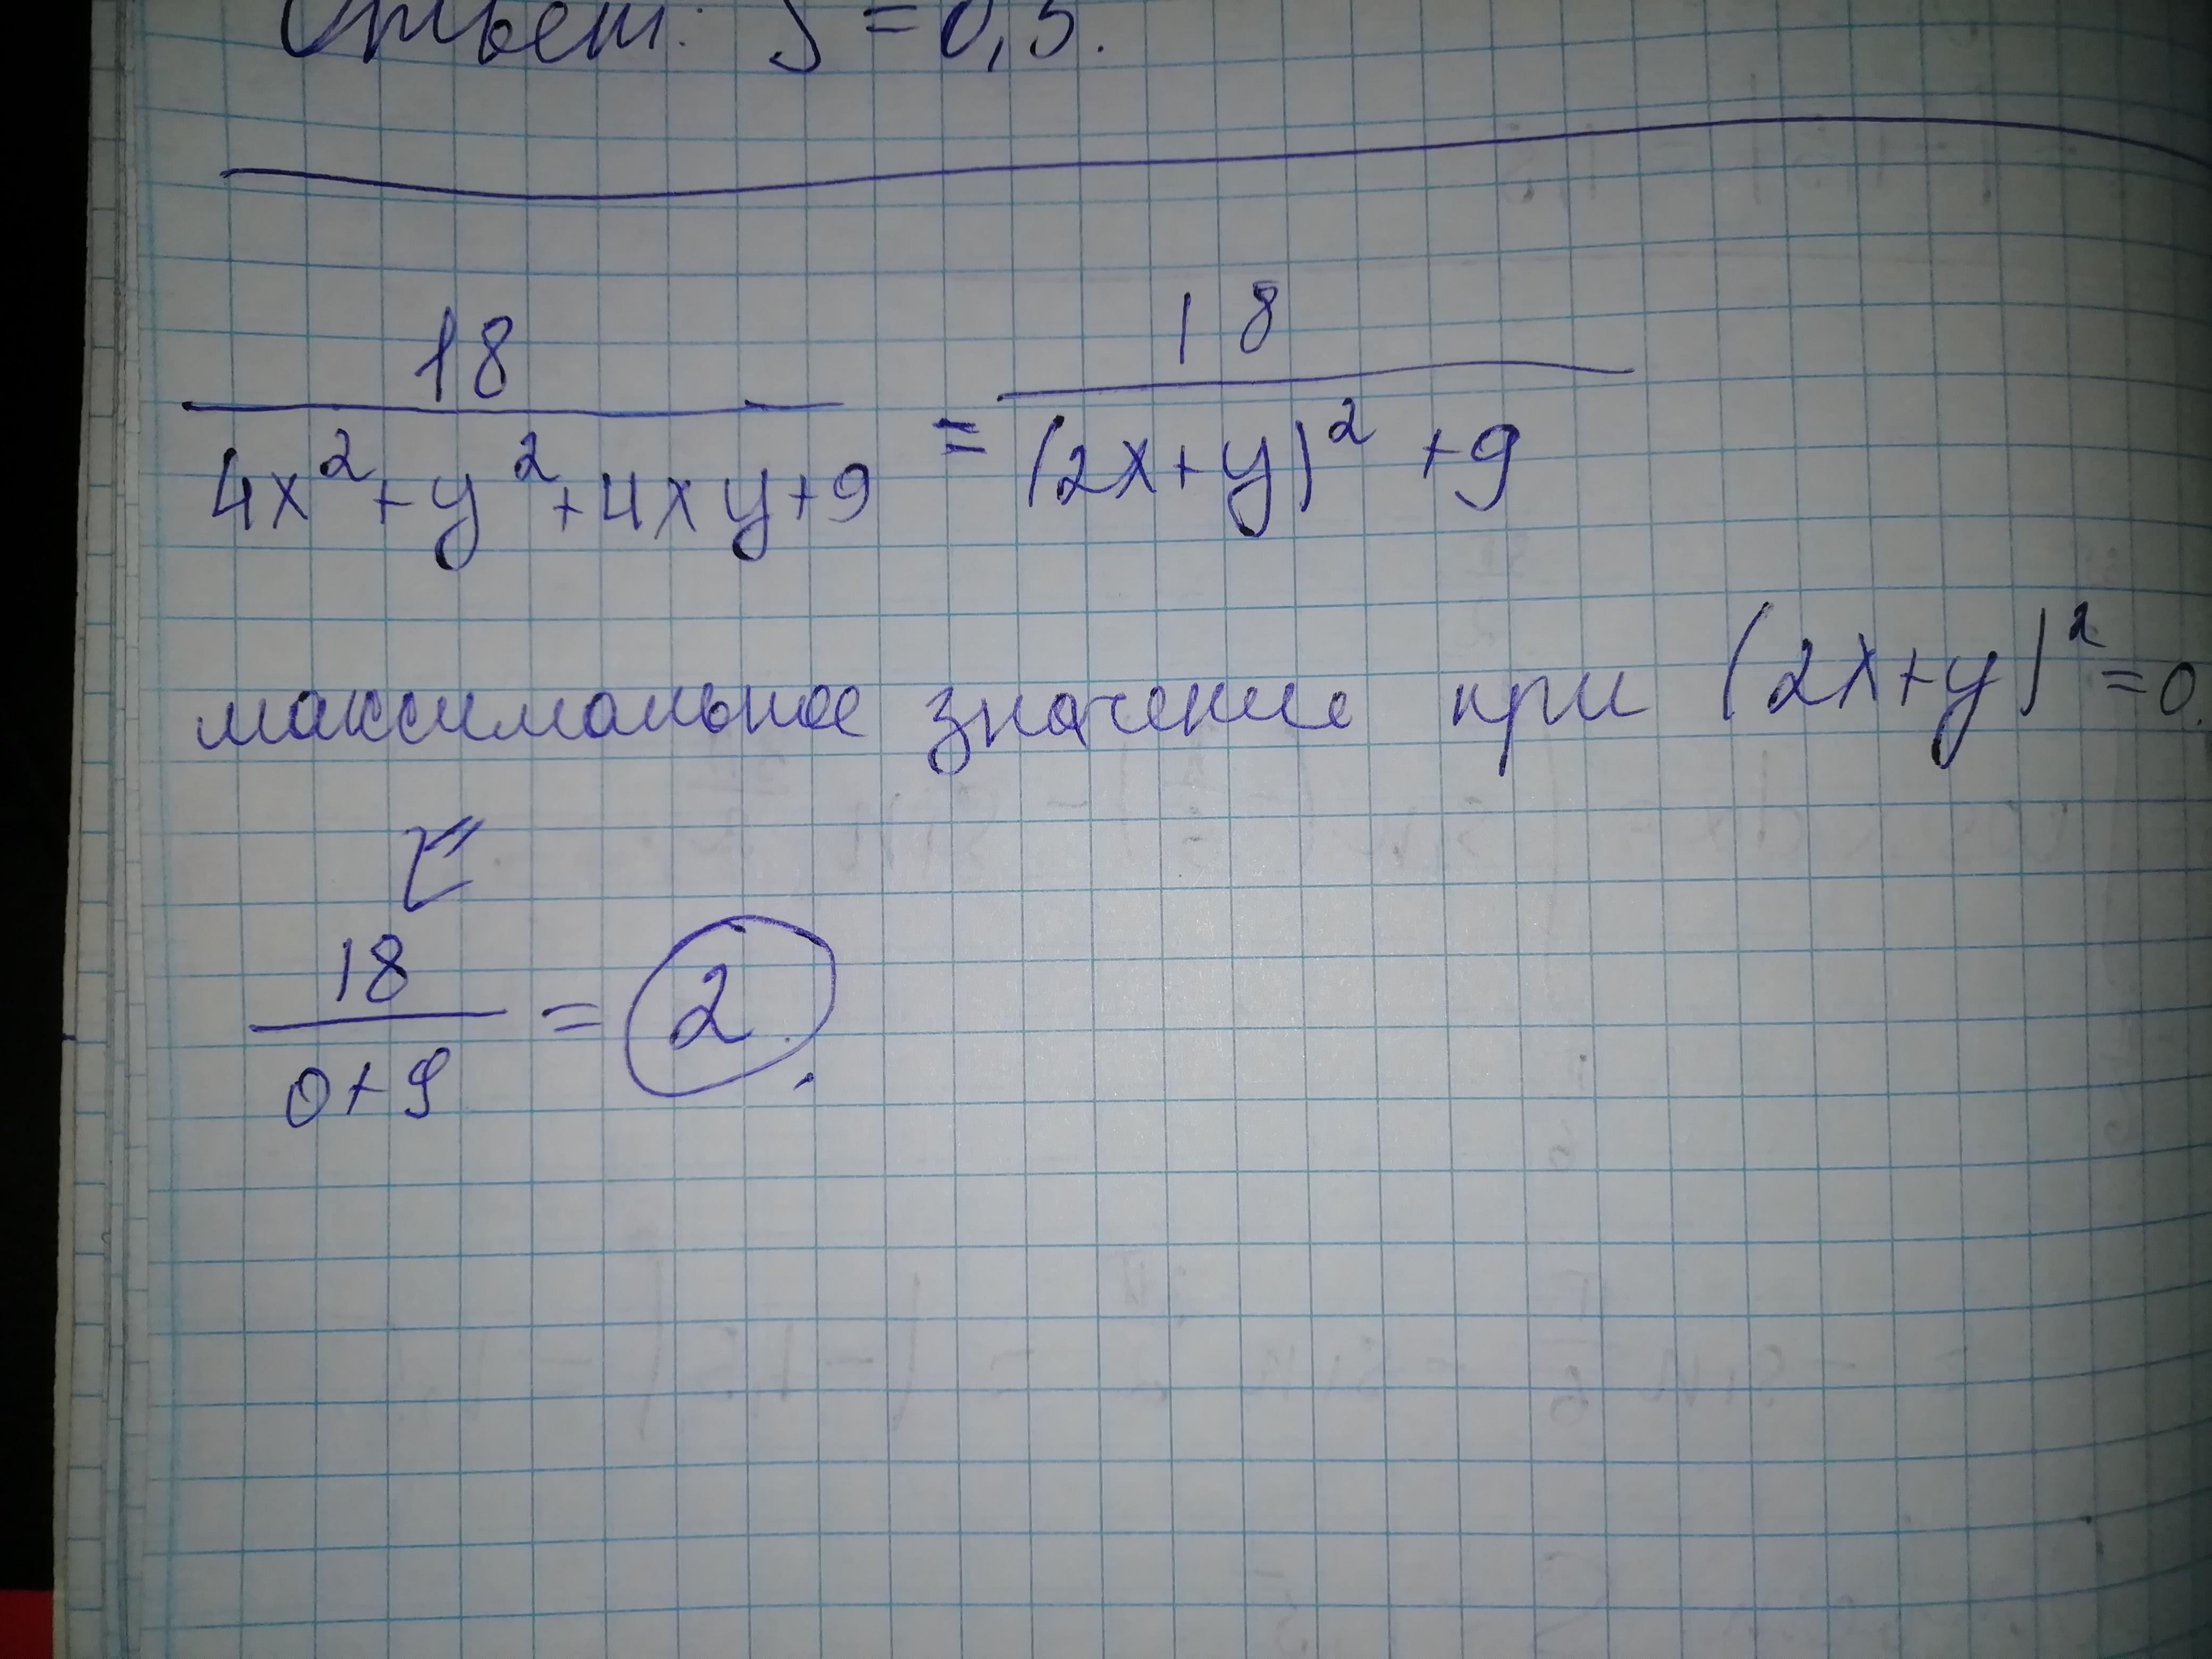 Ответ: S = 0,5.
18 / (4x² + y² + 4xy + 9) = 18 / ((2x+y)² + 9)
максимальное значение при (2x+y)² = 0.
18 / (0+9) = 2.